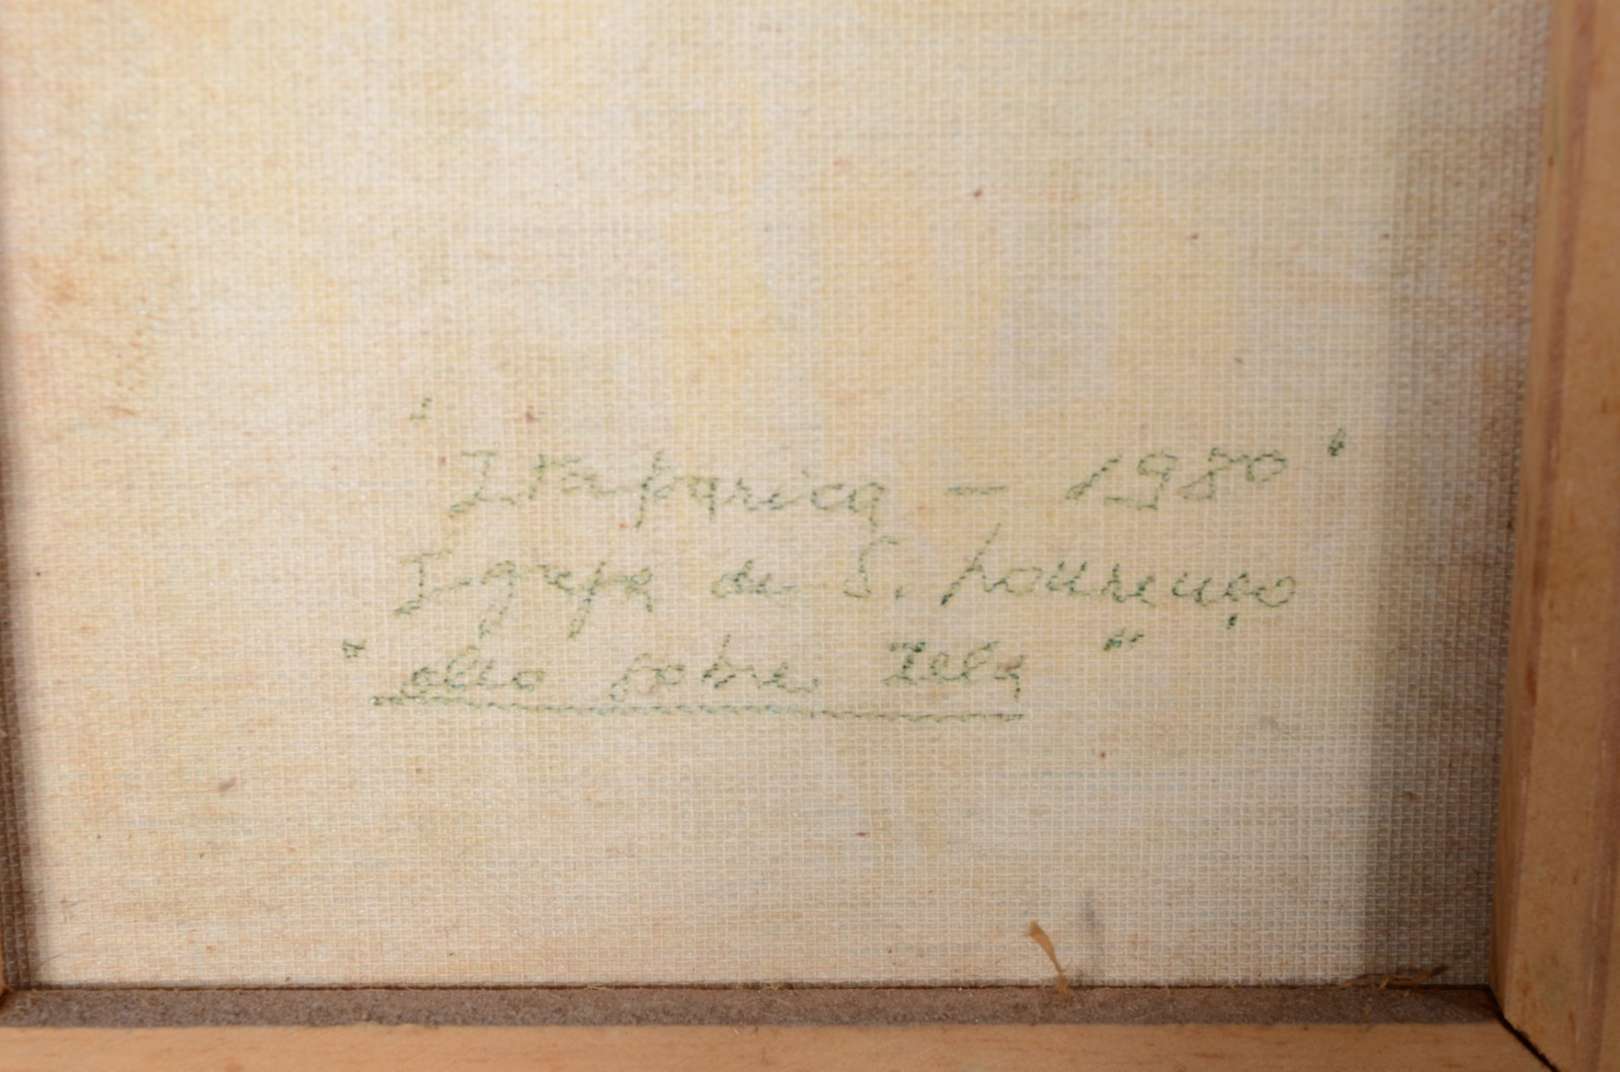 "Itaparica - 1980"
Igreja de S. Lourenço
"oleo sobre Tela"